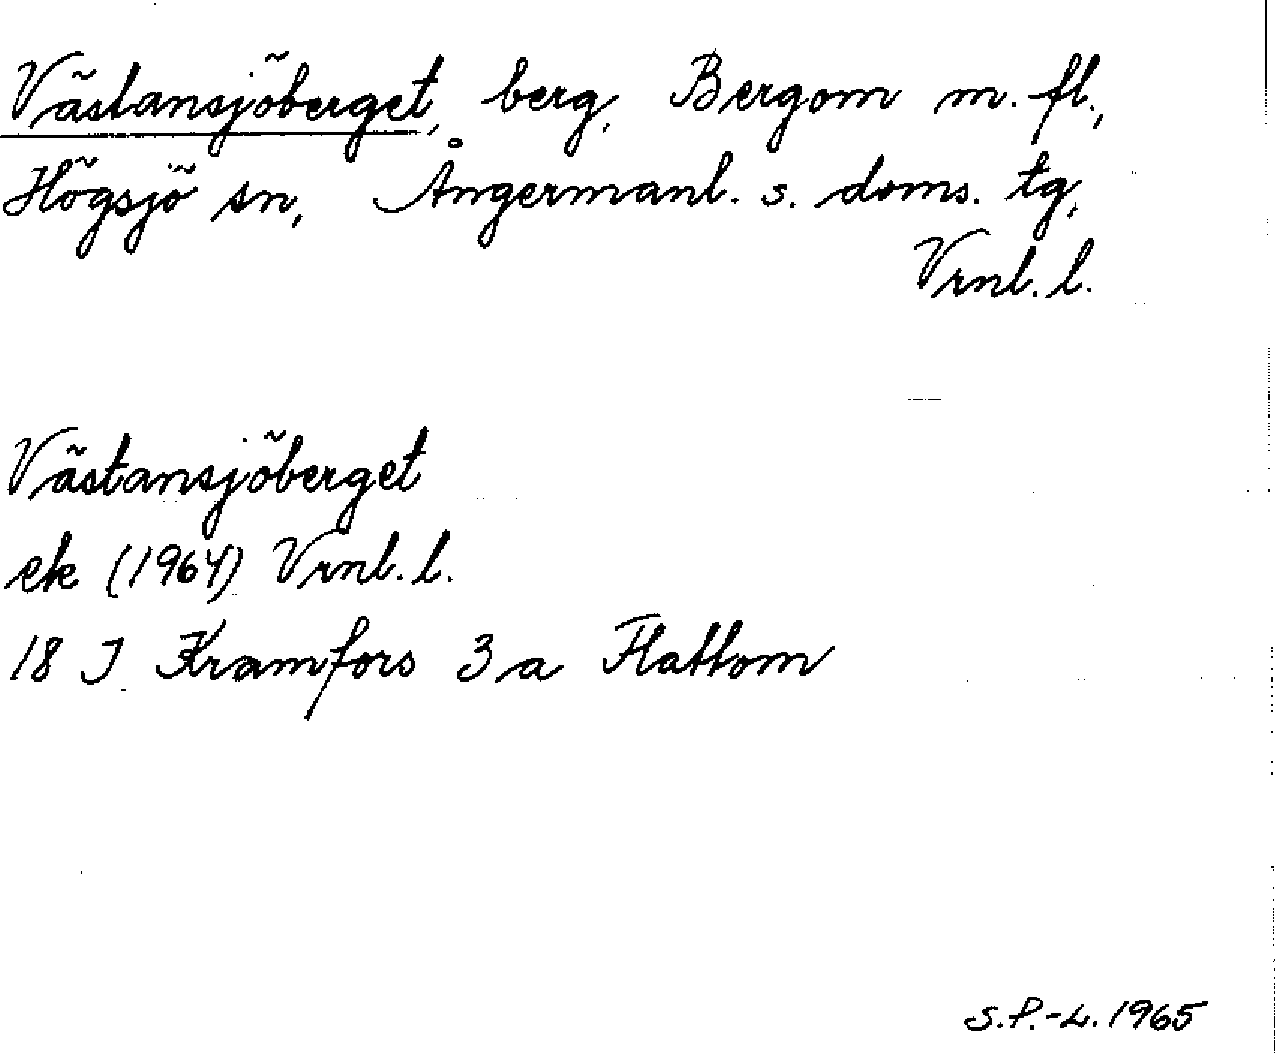 Västansjöberget, berg, Bergom m. fl.,
Högsjö sn, Ångermanl. s. doms. tg,
Vrnl. l.
Västansjöberget
ek (1964) Vrnl. l.
18 I Kramfors 3 a Flattom
S.P.-L. 1965